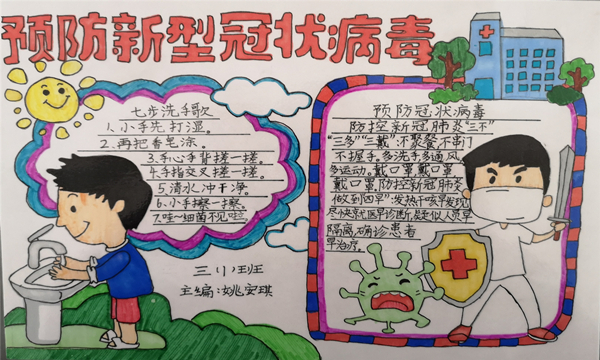 预防新型冠状病毒
七步洗手歌
1.小手先打湿。
2.再把香皂涂。
3.手心手背搓一搓。
4.手指交叉搓一搓。
5.清水冲干净。
6.小手擦一擦。
7.哇~细菌不见啦
三(1)班
主编:姚安琪
预防冠状病毒
防控新冠肺炎"三不"
"三多""三戴":不聚餐不串门
不握手。多洗手多通风
多运动。戴口罩戴口罩
戴口罩防控新冠肺炎
做到四早"发热干咳早发现
尽快就医早诊断,疑似人员早
隔离,确诊患者
早治疗。